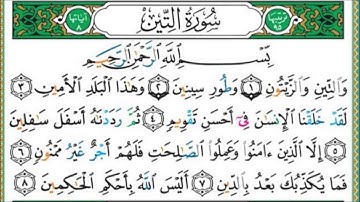 ترتيبها ٩٥
سورة التين
آياتها ٨
بِسْمِ اللَّهِ الرَّحْمَٰنِ الرَّحِيمِ
وَالتِّينِ وَالزَّيْتُونِ ١ وَطُورِ سِينِينَ ٢ وَهَٰذَا الْبَلَدِ الْأَمِينِ ٣
لَقَدْ خَلَقْنَا الْإِنسَانَ فِي أَحْسَنِ تَقْوِيمٍ ٤ ثُمَّ رَدَدْنَاهُ أَسْفَلَ سَافِلِينَ
٥ إِلَّا الَّذِينَ ءَامَنُوا وَعَمِلُوا الصَّالِحَاتِ فَلَهُمْ أَجْرٌ غَيْرُ مَمْنُونٍ ٦
فَمَا يُكَذِّبُكَ بَعْدُ بِالدِّينِ ٧ أَلَيْسَ اللَّهُ بِأَحْكَمِ الْحَاكِمِينَ ٨